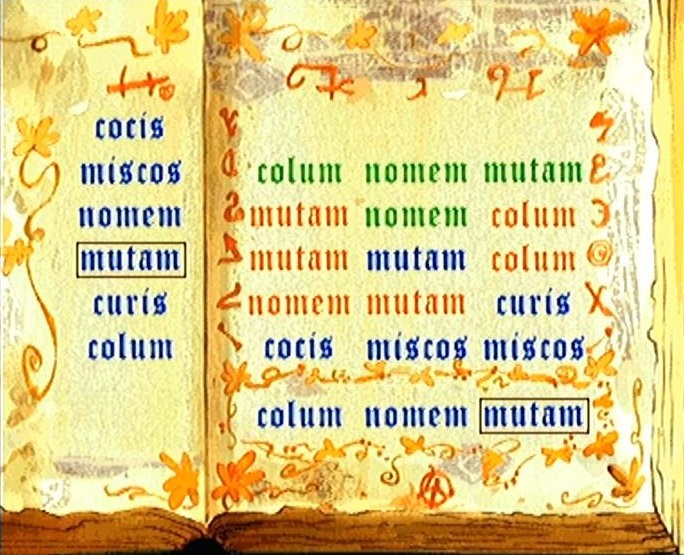 cocis
miscos
nomem
mutam
curis
colum
colum nomem mutam
mutam nomem colum
mutam mutam colum
nomem mutam curis
cocis miscos miscos
colum nomem mutam